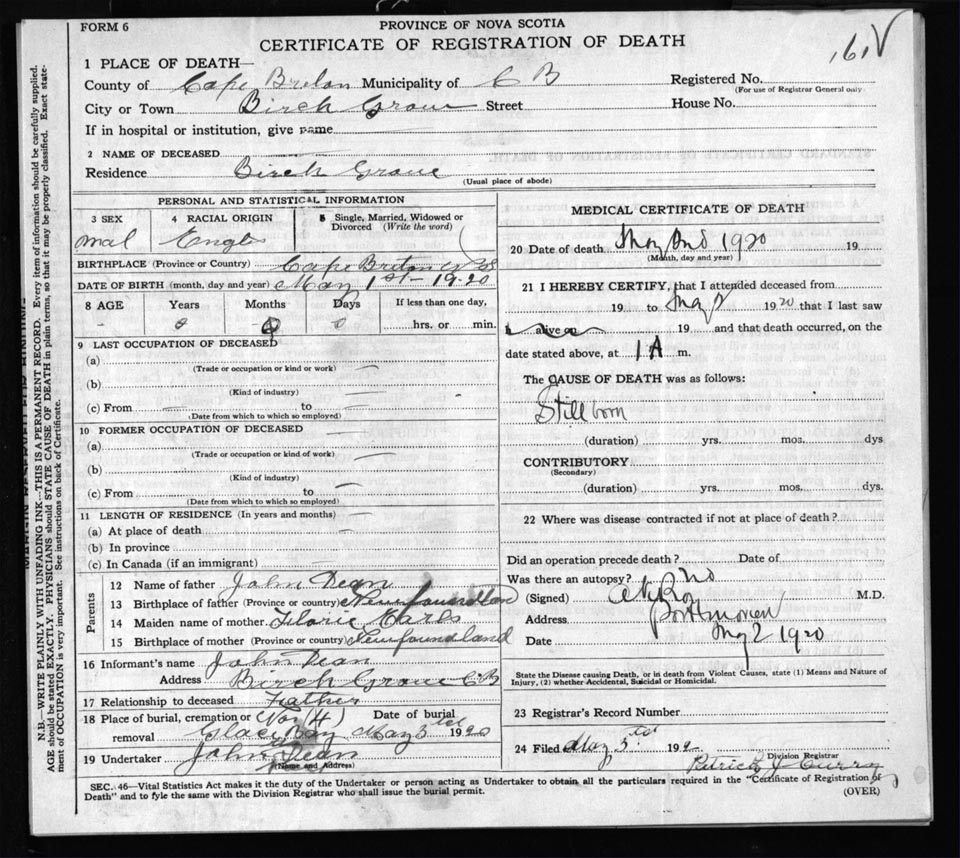 FORM 6
PROVINCE OF NOVA SCOTIA
CERTIFICATE OF REGISTRATION OF DEATH
1 PLACE OF DEATH—
County of Cape Breton Municipality of C B Registered No.
(For use of Registrar General only)
City or Town Birch Grove Street House No.
If in hospital or institution, give name
2 NAME OF DECEASED
Residence Birch Grove
(Usual place of abode)
PERSONAL AND STATISTICAL INFORMATION
3 SEX 4 RACIAL ORIGIN 5 Single, Married, Widowed or Divorced (Write the word)
mal
BIRTHPLACE (Province or Country) Cape Breton N S
DATE OF BIRTH (month, day and year) May 1st 1920
8 AGE Years Months Days If less than one day,
0 0 0 hrs. or min.
9 LAST OCCUPATION OF DECEASED
(a)
(Trade or occupation or kind or work)
(b)
(Kind of industry)
(c) From to
(Date from which to which so employed)
10 FORMER OCCUPATION OF DECEASED
(a)
(Trade or occupation or kind of work)
(b)
(Kind of industry)
(c) From to
(Date from which to which so employed)
11 LENGTH OF RESIDENCE (In years and months)
(a) At place of death
(b) In province
(c) In Canada (if an immigrant)
Parents
12 Name of father John Dean
13 Birthplace of father (Province or country) Newfoundland
14 Maiden name of mother Earls
15 Birthplace of mother (Province or country) Newfoundland
16 Informant's name John Dean
Address Birch Grove C B
17 Relationship to deceased Father
18 Place of burial, cremation or removal Date of burial
Glace Bay May 3rd 1920
19 Undertaker John Dean
(Name and Address)
MEDICAL CERTIFICATE OF DEATH
20 Date of death May 2nd 1920 19
(Month, day and year)
21 I HEREBY CERTIFY, that I attended deceased from
19 to May 1920 that I last saw
h alive on 19 and that death occurred, on the
date stated above, at 1 A m.
The CAUSE OF DEATH was as follows:
Stillborn
(duration) yrs. mos. dys
CONTRIBUTORY
(Secondary)
(duration) yrs. mos. dys.
22 Where was disease contracted if not at place of death?
Did an operation precede death? Date of
Was there an autopsy? no
(Signed) M.D.
Address Port Morien
Date May 2 1920
State the Disease causing Death, or in death from Violent Causes, state (1) Means and Nature of
Injury, (2) whether Accidental, Suicidal or Homicidal.
23 Registrar's Record Number
24 Filed May 3rd 192
Division Registrar
Patrick J Curry
SEC. 46—Vital Statistics Act makes it the duty of the Undertaker or person acting as Undertaker to obtain all the particulars required in the "Certificate of Registration of
Death" and to fyle the same with the Division Registrar who shall issue the burial permit.
(OVER)
N.B.—WRITE PLAINLY WITH UNFADING INK—THIS IS A PERMANENT RECORD. Every item of information should be carefully supplied.
AGE should be stated EXACTLY. PHYSICIANS should STATE CAUSE OF DEATH in plain terms, so that it may be properly classified. Exact state-
ment of OCCUPATION is very important. See instructions on back of Certificate.